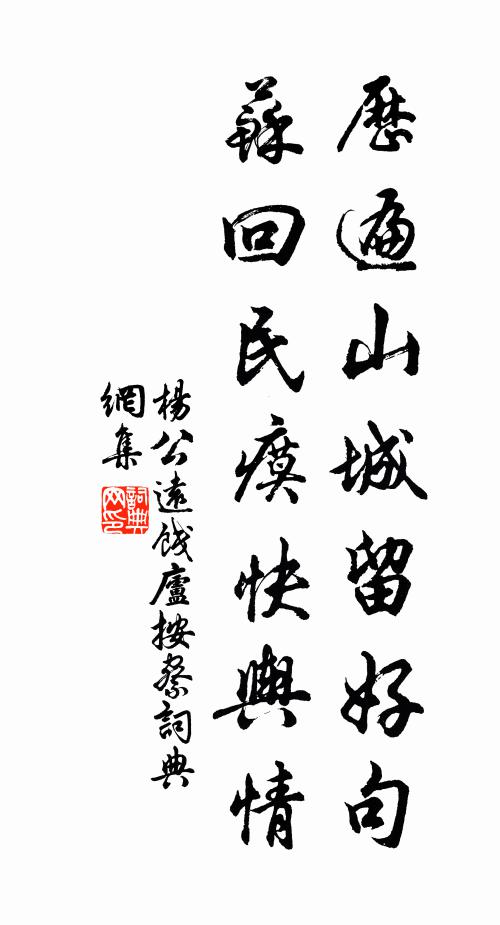 歷遍山城留好句
蘇回民瘼快輿情
楊公遠餞廬按察詞典
網集
詞典
网印